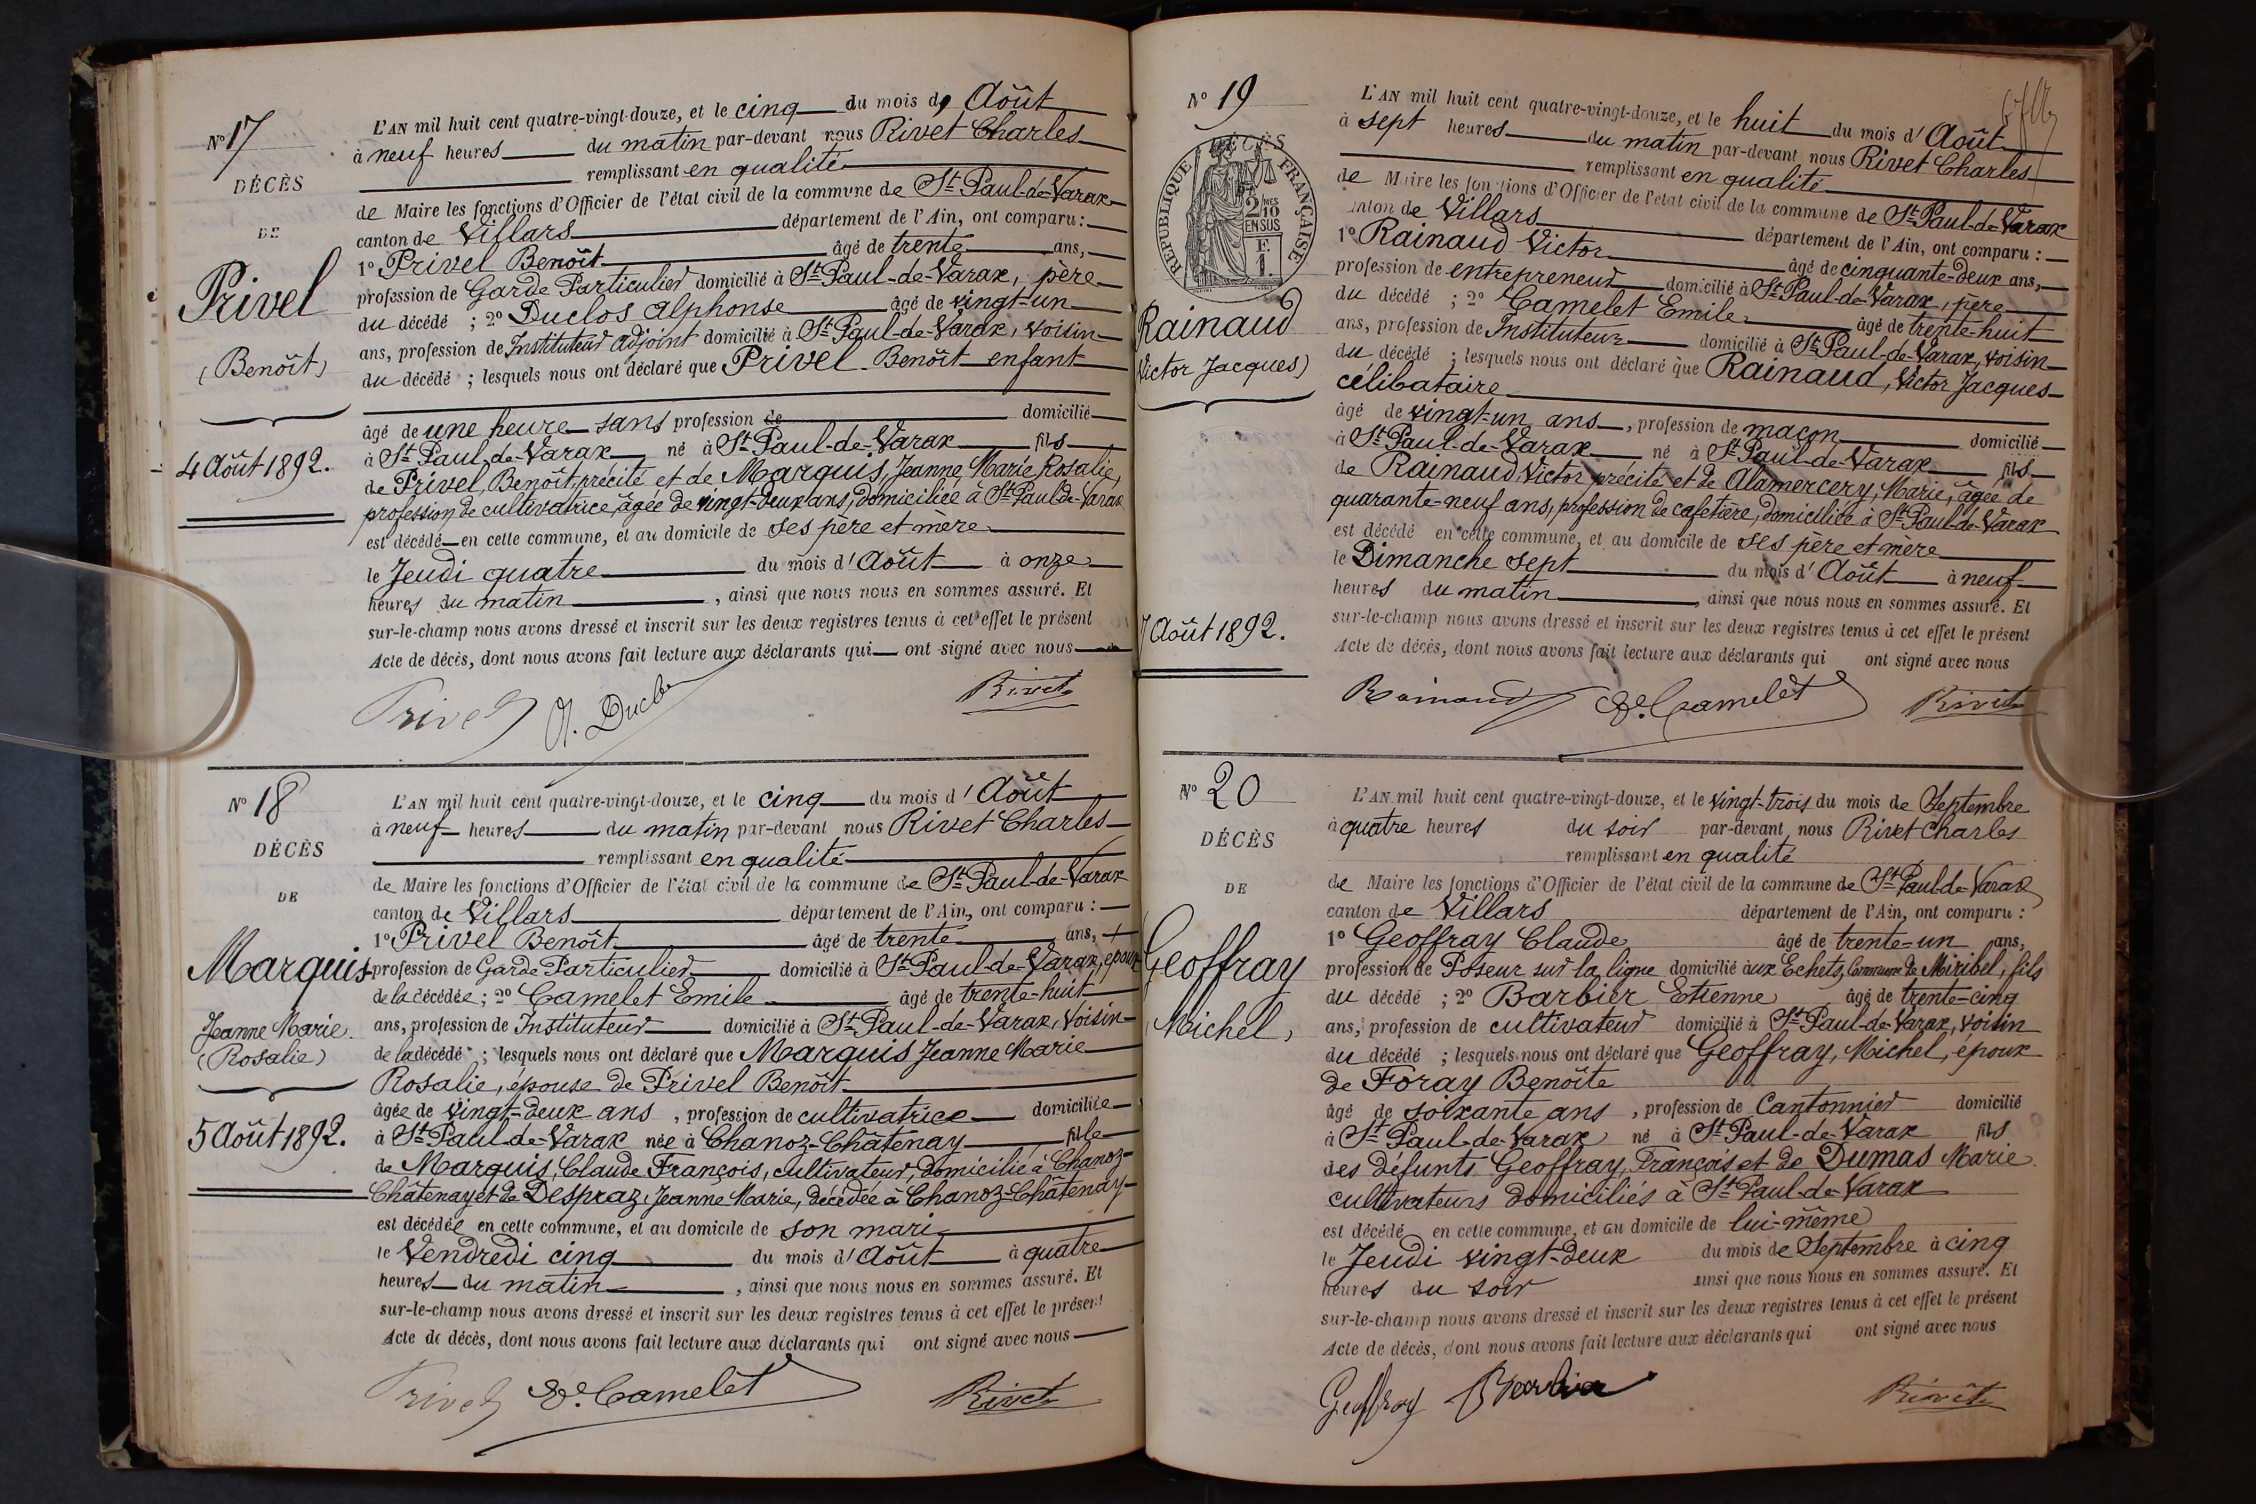 N° 17
DÉCÈS
DE
Privel
(Benoît)
4 Août 1892.
L'AN mil huit cent quatre-vingt-douze, et le cinq du mois d' Août
à neuf heures du matin par-devant nous Rivet Charles
remplissant en qualité
de Maire les fonctions d'Officier de l'état civil de la commune de St Paul-de-Varax
canton de Villars département de l'Ain, ont comparu :
1° Privel Benoît âgé de trente ans,
profession de Garde Particulier domicilié à St Paul-de-Varax, père
du décédé ; 2° Duclos Alphonse âgé de vingt-un
ans, profession de Instituteur adjoint domicilié à St Paul-de-Varax, voisin
du décédé ; lesquels nous ont déclaré que Privel Benoît enfant
âgé de une heure sans profession de domicilié
à St Paul-de-Varax né à St Paul-de-Varax fils
de Privel, Benoît, précité et de Marquis, Jeanne, Marie, Rosalie,
profession de cultivatrice, âgée de vingt-deux ans, domiciliée à St Paul-de-Varax
est décédé en cette commune, et au domicile de ses père et mère
le Jeudi quatre du mois d' Août à onze
heures du matin, ainsi que nous nous en sommes assuré. Et
sur-le-champ nous avons dressé et inscrit sur les deux registres tenus à cet effet le présent
Acte de décès, dont nous avons fait lecture aux déclarants qui ont signé avec nous
Privel A. Duclos Rivet
N° 18
DÉCÈS
DE
Marquis
Jeanne Marie
(Rosalie)
5 Août 1892.
L'AN mil huit cent quatre-vingt-douze, et le cinq du mois d' Août
à neuf heures du matin par-devant nous Rivet Charles
remplissant en qualité
de Maire les fonctions d'Officier de l'état civil de la commune de St Paul-de-Varax
canton de Villars département de l'Ain, ont comparu :
1° Privel Benoît âgé de trente ans,
profession de Garde Particulier domicilié à St Paul-de-Varax, époux
de la décédée ; 2° Camelet Emile âgé de trente-huit
ans, profession de Instituteur domicilié à St Paul-de-Varax, voisin
de la décédé ; lesquels nous ont déclaré que Marquis Jeanne Marie
Rosalie, épouse de Privel Benoît
âgée de vingt-deux ans, profession de cultivatrice domiciliée
à St Paul-de-Varax née à Chanoz-Châtenay fille
de Marquis, Claude François, cultivateur, domicilié à Chanoz-
Châtenay et de Despraz, Jeanne Marie, décédée à Chanoz-Châtenay
est décédée en cette commune, et au domicile de son mari
le Vendredi cinq du mois d' Août à quatre
heures du matin, ainsi que nous nous en sommes assuré. Et
sur-le-champ nous avons dressé et inscrit sur les deux registres tenus à cet effet le présent
Acte de décès, dont nous avons fait lecture aux déclarants qui ont signé avec nous
Privel E. Camelet Rivet
N° 19
DÉCÈS
RÉPUBLIQUE FRANÇAISE
2/10 MES
EN SUS
F.
1.
Rainaud
Victor Jacques)
7 Août 1892.
L'AN mil huit cent quatre-vingt-douze, et le huit du mois d' Août
à sept heures du matin par-devant nous Rivet Charles
remplissant en qualité
de Maire les fonctions d'Officier de l'état civil de la commune de St Paul-de-Varax
canton de Villars département de l'Ain, ont comparu :
1° Rainaud Victor âgé de cinquante-deux ans,
profession de entrepreneur domicilié à St Paul-de-Varax, père
du décédé ; 2° Camelet Emile âgé de trente-huit
ans, profession de Instituteur domicilié à St Paul-de-Varax, voisin
du décédé ; lesquels nous ont déclaré que Rainaud, Victor Jacques
célibataire
âgé de vingt-un ans, profession de maçon domicilié
à St Paul-de-Varax né à St Paul-de-Varax fils
de Rainaud, Victor précité et de Alamercery, Marie, âgée de
quarante-neuf ans, profession de cafetière, domiciliée à St Paul-de-Varax
est décédé en cette commune, et au domicile de ses père et mère
le Dimanche sept du mois d' Août à neuf
heures du matin, ainsi que nous nous en sommes assuré. Et
sur-le-champ nous avons dressé et inscrit sur les deux registres tenus à cet effet le présent
Acte de décès, dont nous avons fait lecture aux déclarants qui ont signé avec nous
Rainaud E. Camelet Rivet
N° 20
DÉCÈS
DE
Geoffray
Michel,
L'AN mil huit cent quatre-vingt-douze, et le vingt-trois du mois de Septembre
à quatre heures du soir par-devant nous Rivet Charles
remplissant en qualité
de Maire les fonctions d'Officier de l'état civil de la commune de St Paul-de-Varax
canton de Villars département de l'Ain, ont comparu :
1° Geoffray Claude âgé de trente-un ans,
profession de Poseur sur la ligne domicilié aux Echets, Commune de Miribel, fils
du décédé ; 2° Barbier Etienne âgé de trente-cinq
ans, profession de cultivateur domicilié à St Paul-de-Varax, voisin
du décédé ; lesquels nous ont déclaré que Geoffray, Michel, époux
de Foray Benoîte
âgé de soixante ans, profession de Cantonnier domicilié
à St Paul-de-Varax né à St Paul-de-Varax fils
des défunts Geoffray, François et de Dumas Marie
cultivateurs domiciliés à St Paul-de-Varax
est décédé en cette commune, et au domicile de lui-même
le Jeudi vingt-deux du mois de Septembre à cinq
heures du soir ainsi que nous nous en sommes assuré. Et
sur-le-champ nous avons dressé et inscrit sur les deux registres tenus à cet effet le présent
Acte de décès, dont nous avons fait lecture aux déclarants qui ont signé avec nous
Geoffray Barbier Rivet